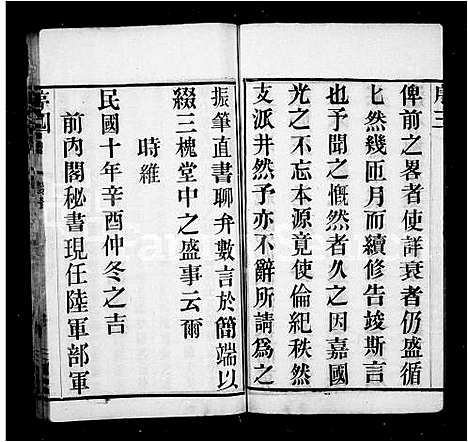 序三
俾前之畧者使詳衰者仍盛循
匕然幾匝月而續修告竣斯言
也予聞之慨然者久之因嘉國
光之不忘本源竟使倫紀秩然
支派井然予亦不辭所請為之
振筆直書聊弁數言於簡端以
綴三槐堂中之盛事云爾
時維
民國十年辛酉仲冬之吉
前內閣秘書現任陸軍部軍